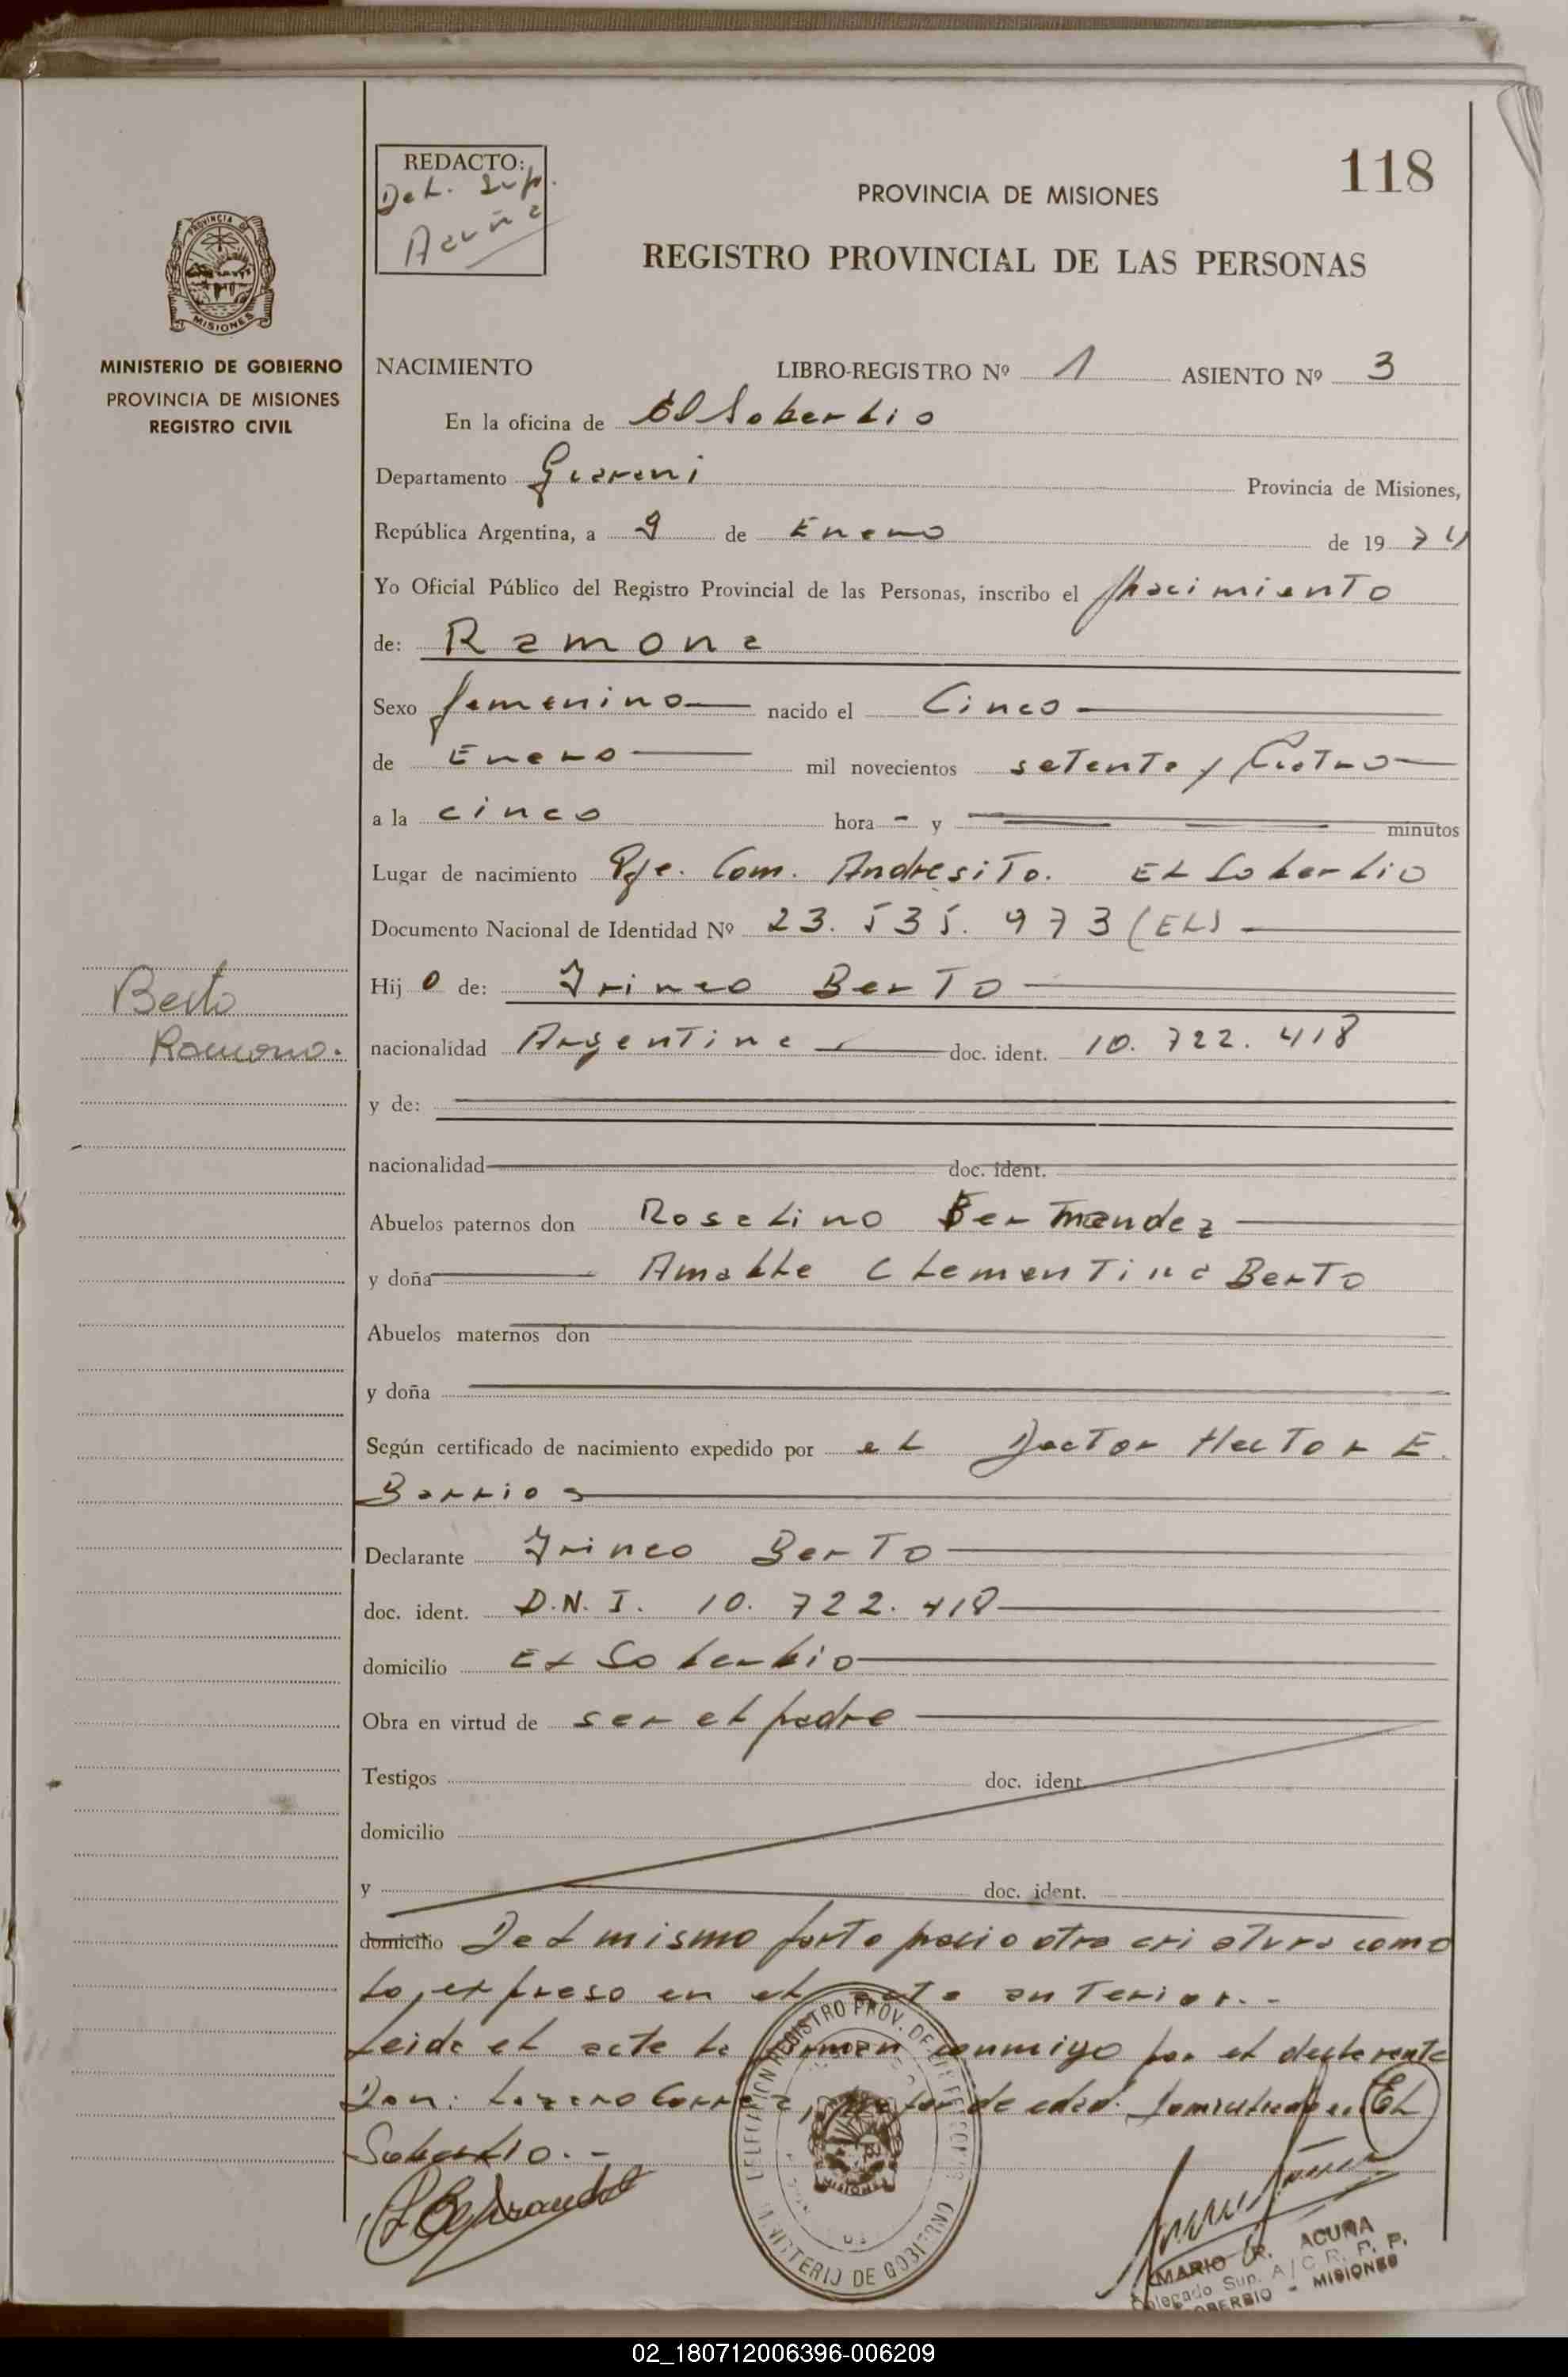 REDACTO:
Del. Sup.
Acuña
118
PROVINCIA DE MISIONES
REGISTRO PROVINCIAL DE LAS PERSONAS
PROVINCIA DE
MISIONES
MINISTERIO DE GOBIERNO
PROVINCIA DE MISIONES
REGISTRO CIVIL
NACIMIENTO LIBRO-REGISTRO Nº 1 ASIENTO Nº 3
En la oficina de El Soberbio
Departamento Guarani Provincia de Misiones,
República Argentina, a 9 de Enero de 19 74
Yo Oficial Público del Registro Provincial de las Personas, inscribo el Nacimiento
de: Ramona
Sexo femenino nacido el Cinco
de Enero mil novecientos setenta y Cuatro
a la cinco hora - y minutos
Lugar de nacimiento Pje. Com. Andresito. El Soberbio
Documento Nacional de Identidad Nº 23.535.973 (EL)
Berto
Ramona.
Hij o de: Irineo Berto
nacionalidad Argentina doc. ident. 10.722.418
y de:
nacionalidad doc. ident.
Abuelos paternos don Rosalino
y doña Clementina Berto
Abuelos maternos don
y doña
Según certificado de nacimiento expedido por el Doctor Hector E.
Barrios
Declarante Irineo Berto
doc. ident. D.N.I. 10.722.418
domicilio El Soberbio
Obra en virtud de ser el padre
Testigos doc. ident.
domicilio
y doc. ident.
domicilio Del mismo parto nacio otra criatura como
lo expreso en el acta anterior.-
Leida el acta la firman conmigo por el declarante
Don: Lazaro Correa, mayor de edad. domiciliado en El
Soberbio.-
REGISTRO PROV. DE
MISIONES
MINISTERIO DE GOBIERNO
MARIO R. ACUÑA
Delegado Sup. A/C R. P. P.
SOBERBIO - MISIONES
02_180712006396-006209